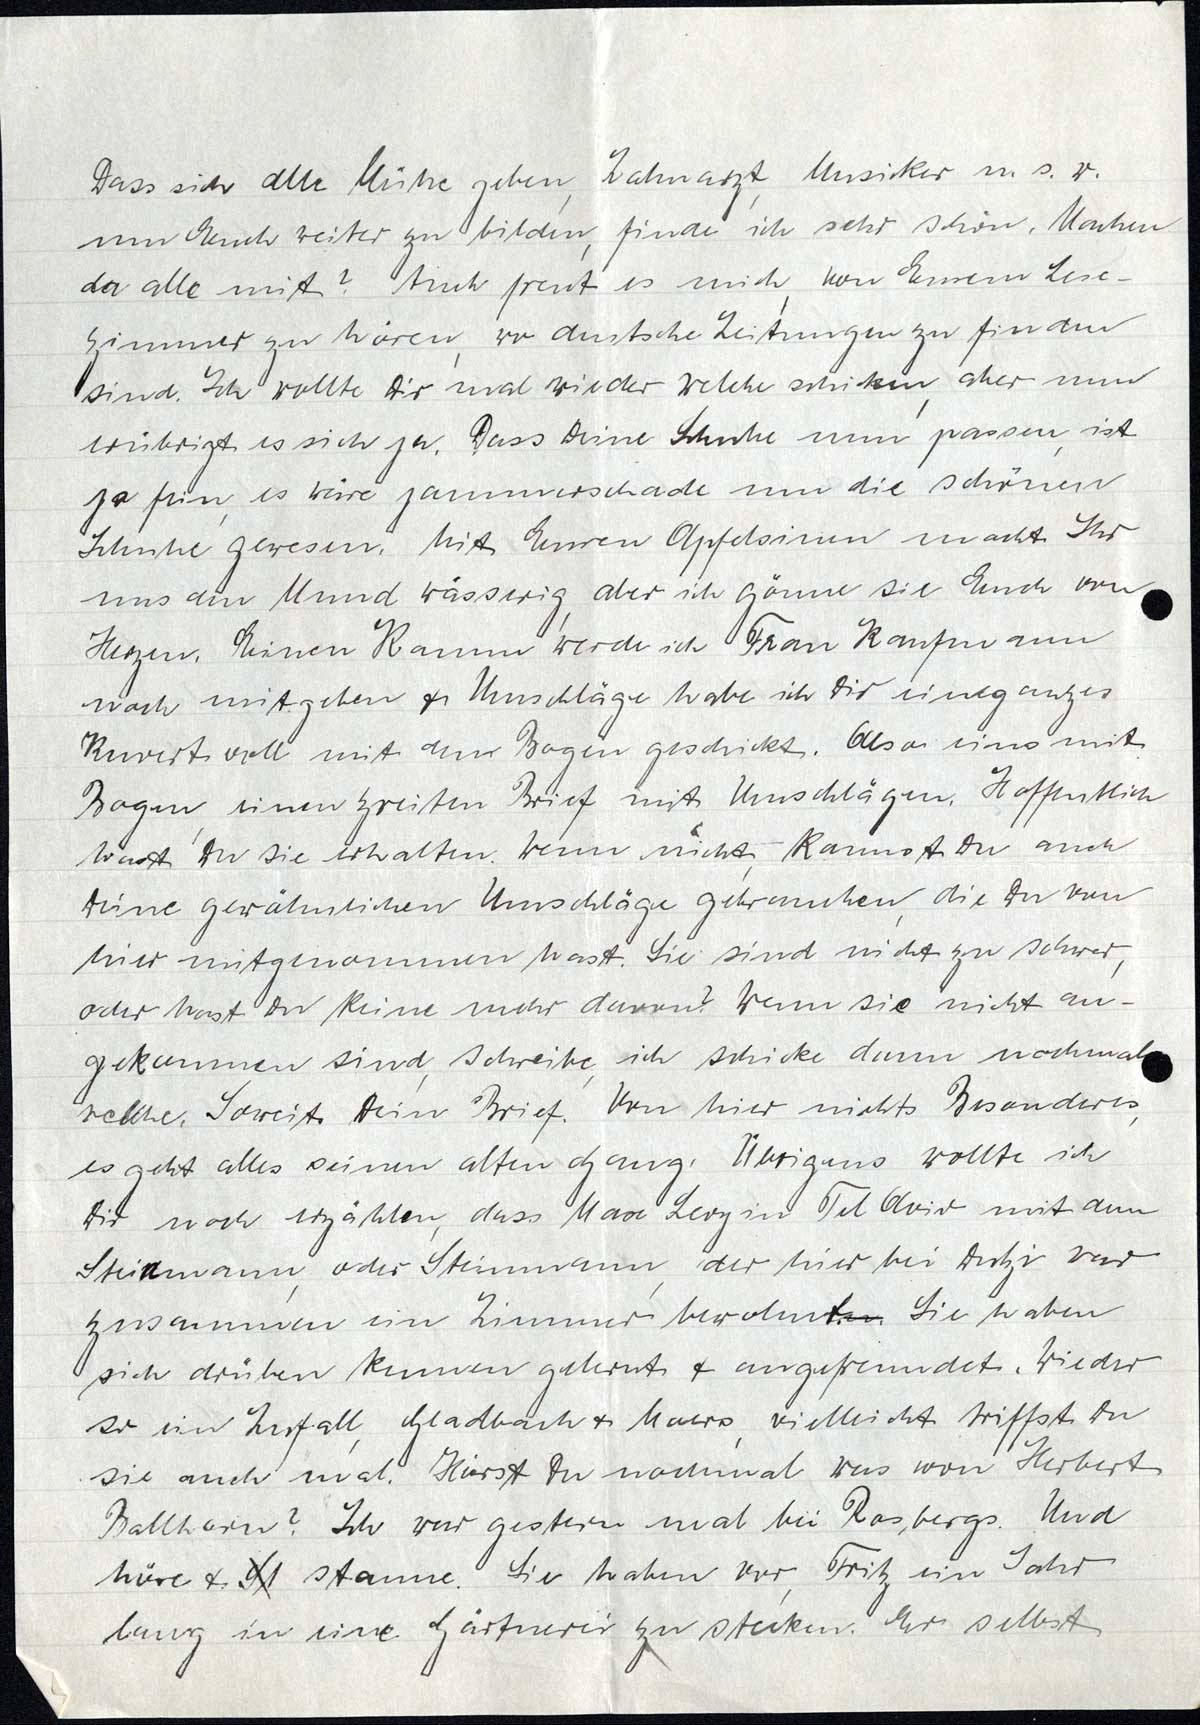 Dass sich alle Mühe geben, Zahnarzt, Musiker u. s. w.
um Euch weiter zu bilden, finde ich sehr schön. Machen
da alle mit? Auch freut es mich, von Eurem Lese-
zimmer zu hören, wo deutsche Zeitungen zu finden
sind. Ich wollte Dir mal wieder welche schicken, aber nun
erübrigt es sich ja. Dass Deine Schuhe nun passen, ist
ja fein, es wäre jammerschade um die schönen
Schuhe gewesen. Mit Euren Apfelsinen macht Ihr
uns den Mund wässerig, aber ich gönne sie Euch von
Herzen. Einen Kamm werde ich Frau Kaufmann
noch mitgeben & Umschläge habe ich Dir ein ganzes
Kuvert voll mit den Bogen geschickt. Also eins mit
Bogen, einen zweiten Brief mit Umschlägen. Hoffentlich
hast Du sie erhalten. Wenn nicht, kannst Du auch
Deine gewöhnlichen Umschläge gebrauchen, die Du von
hier mitgenommen hast. Sie sind nicht zu schwer,
oder hast Du keine mehr davon? Wenn sie nicht an-
gekommen sind, schreibe, ich schicke dann nochmal
welche. Soweit Dein Brief. Von hier nichts Besonderes,
es geht alles seinen alten Gang. Übrigens wollte ich
Dir noch erzählen, dass Max Levy in Tel Aviv mit dem
Steinmann, oder Steinmann, der hier bei war
zusammen ein Zimmer bewohnt. Sie haben
sich drüben kennen gelernt & angefreundet. Wieder
so ein Zufall, Gladbach & Moers, vielleicht triffst Du
sie auch mal. Hörst Du nochmal was von Herbert
Ballhorn? Ich war gestern mal bei Rosbergs. Und
höre & staune. Sie haben vor, Fritz ein Jahr
lang in eine Gärtnerei zu stecken. Er selbst